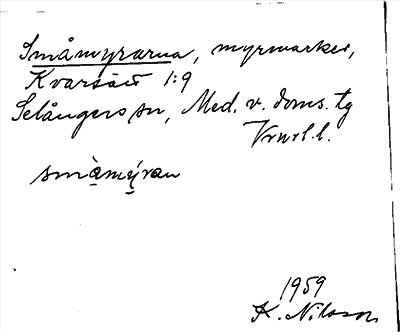 Småmyrarna, myrmarker,
Kvarsätt 1:9
Selångers sn, Med. v. doms. tg
småmyran
1959
K. Nilsson